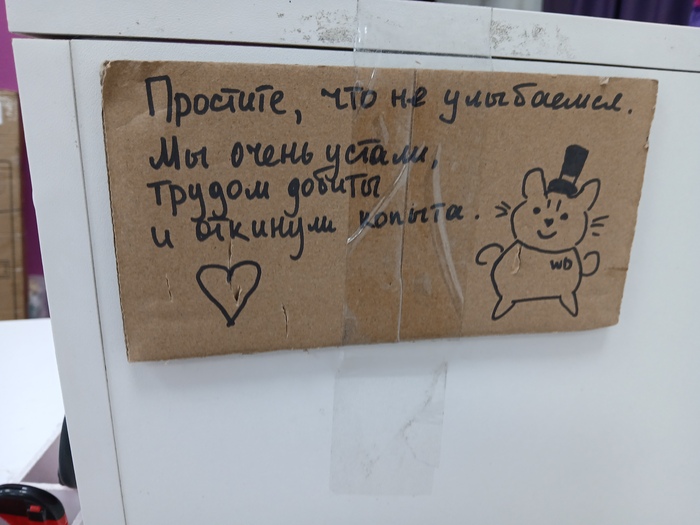 Простите, что не улыбаемся.
Мы очень устали,
трудом добиты
и откинули копыта.
WD